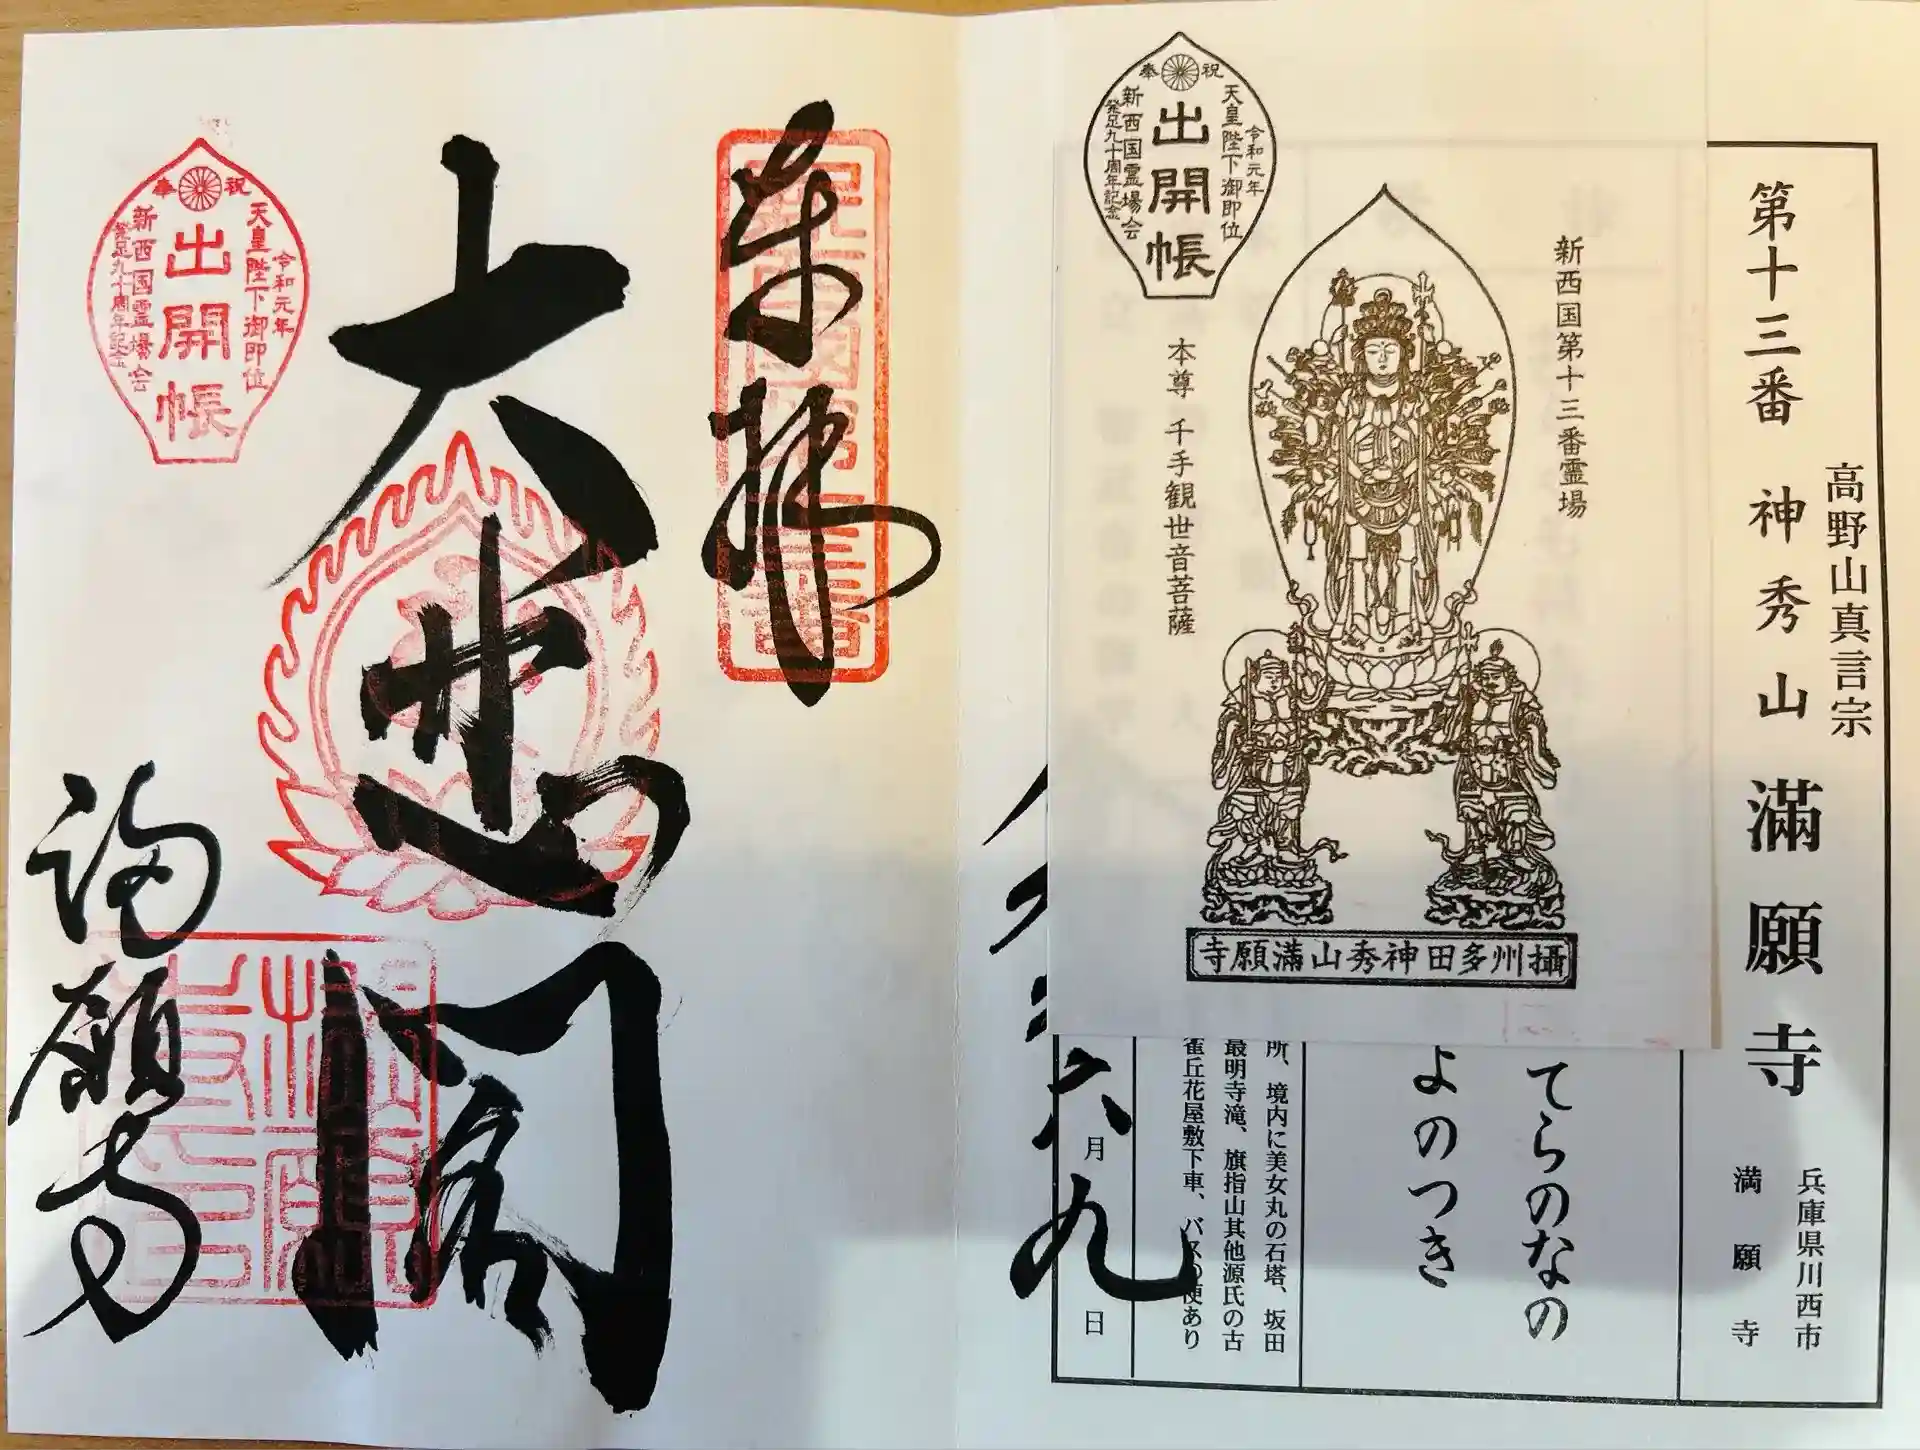 第十三番 神秀山 満願寺
高野山真言宗
兵庫県川西市
満願寺
てらのなの
よのつき
所、境内に美女丸の石塔、坂田
最明寺滝、旗指山其他源氏の古
雀丘花屋敷下車、バスの便あり
六月九日
新西国第十三番霊場
本尊 千手観世音菩薩
奉祝
令和元年
天皇陛下御即位
出開帳
新西国霊場会
発足九十周年記念
摂州多田神秀山満願寺
奉拝
大悲閣
満願寺
奉祝
令和元年
天皇陛下御即位
出開帳
新西国霊場会
発足九十周年記念